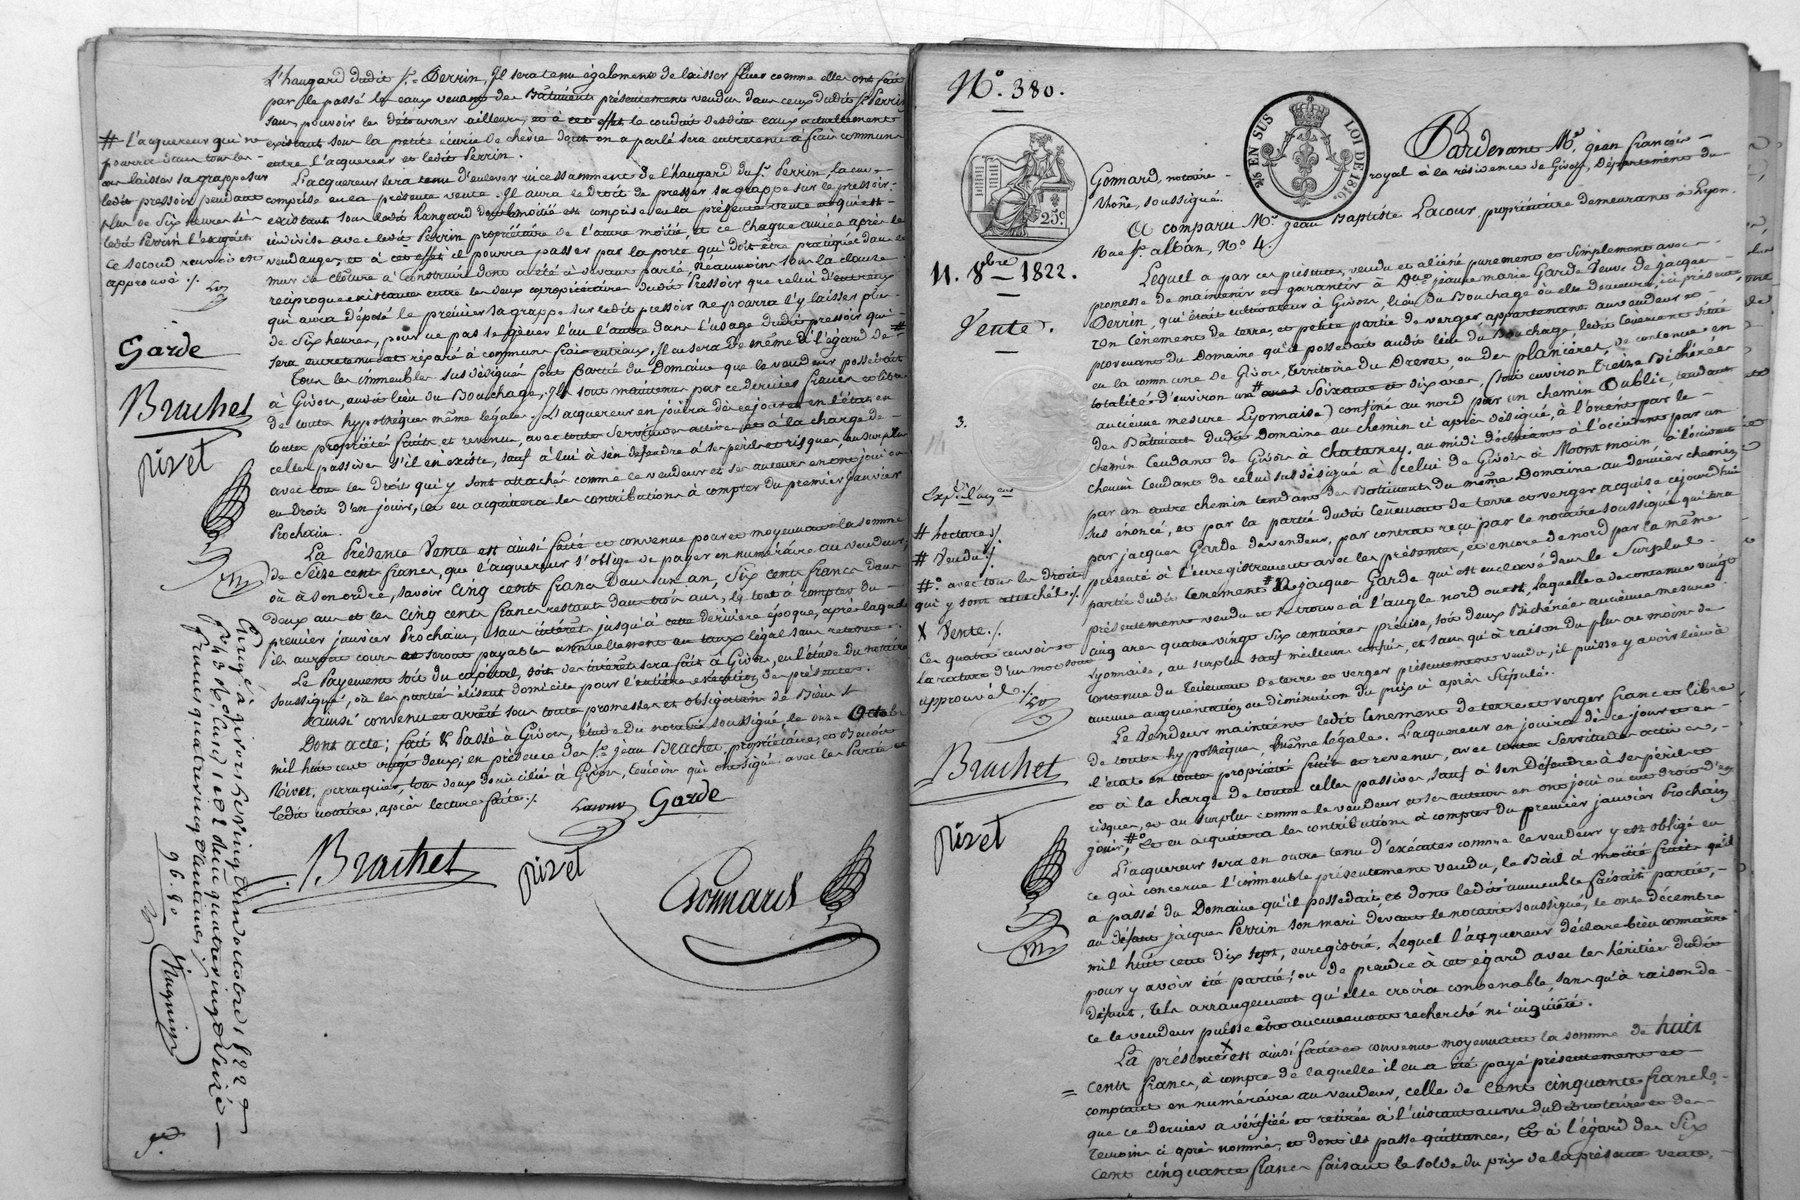 L'hangard dudit Sr. Perrin, Il sera tenu également de laisser fluer comme elles ont fait
par le passé les eaux venant des Bâtiments présentement vendus dans ceux dudit Sr. Perrin
sans pouvoir les détourner ailleurs, et à cet effet le conduit desdites eaux actuellement
existant sous la petite écurie de chèvre dont on a parlé sera entretenu à frais communs
entre l'acquereur et ledit Perrin.
L'acquereur sera tenu d'enlever incessamment de l'hangard du Sr. Perrin, la cuve
comprise en la présente vente. Il aura le Droit de presser sa grappe sur le pressoir
existant sous ledit hangard dont la moitié est comprise en la présente vente et qui est
indivise avec ledit Perrin propriétaire de l'autre moitié, et ce chaque année après les
vendanges, et à cet effet il pourra passer par la porte qui doit être pratiquée dans le
mur de clôture à construire dont a été ci devant parlé, Néanmoins sous la clause
réciproque existante entre les deux copropriétaires dudit Pressoir que celui d'entreux
qui aura déposé le premier sa grappe sur ledit pressoir ne pourra l'y laisser plus
de Six heures, pour ne pas se gêner l'un l'autre dans l'usage dudit pressoir qui
sera entretenu et réparé à communs frais entreux. Il en sera de même à l'égard de #
# L'acquereur qui ne
pourra dans tous les
cas laisser sa grappe sur
ledit pressoir pendant
plus de Six heures si
ledit Perrin l'exigeait
ce second renvois est
approuvé ./.
Garde
Brachet
pivet
Tous les immeubles sus désignés font partie du Domaine que le vendeur possedait
à Givors, audit lieu du Bouchage, Ils sont maintenus par ce dernier francs et libres
de toute hypothèque même légale. L'acquereur en jouira dès ce jour et en l'état en
toute propriété fruits et revenus, avec toute Servitudes actives, et à la charge de
celles passives s'il en existe, sauf à lui à s'en défendre à ses périls et risques, au surplus
avec tous les Droits qui y sont attachés comme le vendeur et ses auteurs en ont joui ou
eu Droit d'en jouir, et en acquitera les contributions à compter du premier janvier
Prochain.
La Présente Vente est ainsi faite et convenue pour et moyennant la somme
de Seize cents francs, que l'acquereur s'oblige de payer en numéraire au vendeur,
ou à son ordre, savoir Cinq cents francs Dans un an, Six cents francs dans
deux ans et les Cinq cents francs restant dans trois ans, le tout à compter du
premier janvier Prochain, sans intérêt jusqu'à cette dernière époque, après laquelle
ils auront cours et seront payables annuellement au taux légal sans retenue.
Le Payement soit du capital, soit des intérêts sera fait à Givors, en l'étude du notaire
soussigné, où les parties élisent domicile pour l'entière exécution des présentes.
Ainsi convenu et arrêté sous toute promesses et obligations de Biens &
Dont acte; fait & Passé à Givors, étude du notaire soussigné, le onze Octobre
mil huit cent vingt deux; en présence des Srs. jean Brachet, propriétaire, et Benoit
Rivet, perruquier, tous deux domiciliés à Givors, témoins qui ont signé avec les Parties et
ledit notaire, après lecture faite ./.
Lacour Garde
Brachet pivet
Gonnard
Enregé à Givors le vingt un octobre 1822
96. 80
No. 380.
25 EN SUS LOI DE 1816
25c
11. 8bre 1822.
Vente.
3.
Pardevant Me. jean françois
Gonnard, notaire royal à la résidence de Givors, Département du
Rhône, soussigné.
A comparu Mr. jean Baptiste Lacour, propriétaire demeurant à Lyon,
Rue St. alban, No. 4.
Lequel a par ces présentes, vendu et aliéné purement et simplement avec
promesse de maintenir et garantir à De. jeanne marie Garde Veuve de jacques
Perrin, qui était cultivateur à Givors, lieu du Bouchage où elle demeure, ici présente,
Un tènement de terre, et petite partie de verger appartenant au vendeur et
provenant du Domaine qu'il possedait audit lieu du Bouchage ledit tènement situé
en la commune de Givors, territoire du Drevet, ou des planières, de contenue en
totalité d'environ un # Soixante et dix ares, (soit environ treize Bichérées
ancienne mesure Lyonnaise) confiné au nord par un chemin Public, tendant
des Bâtiments dudit Domaine au chemin ci après désigné, à l'orient par le
chemin tendant de Givors à Chatanay, au midi déclinant à l'occident par un
chemin tendant de celui sus désigné à celui de Givors à Montmoin, à l'occident
par un autre chemin tendant des Bâtiments du même Domaine au dernier chemin
sus énoncé, et par la partie dudit tènement de terre et verger acquise cejourdhui
par jacques Garde du vendeur, par contrat reçu par le notaire soussigné qui sera
présenté à l'enregistrement avec les présentes, et encore de nord par la même
partie dudit tènement # à jacques Garde qui est enclavée dans le Surplus
présentement vendu et se trouve à l'angle nord ouest, laquelle a de contenue vingt
cinq ares quatre vingt Six centiares précise, soit deux Bichérées ancienne mesure
Lyonnaise, au surplus sauf meilleurs confins, et sans qu'à raison du plus ou moins de
contenue du tènement de terre et verger présentement vendu, il puisse y avoir lieu à
aucune augmentation ou diminution du prix ci après Stipulé.
Expédiée
# hectare ./.
# Vendu ./.
#o avec tous les droits
qui y sont attachés ./.
X Vente ./.
Ces quatre renvois et
la rature d'un mot sont
approuvés ./.
Brachet
pivet
Le Vendeur maintient ledit tènement de terre et verger franc et libre
de toute hypothèque, même légale. L'acquereur en jouira dès ce jour et en
l'état en toute propriété fruits et revenus, avec toute Servitudes actives,
et à la charge de toute celles passives, sauf à s'en Défendre à ses périls et
risques, et au surplus comme le vendeur et ses auteurs en ont joui ou eu droit d'en
jouir, #o et en acquitera les contributions à compter du premier janvier Prochain
L'acquereur sera en outre tenu d'exécuter comme le vendeur y est obligé en
ce qui concerne l'immeuble présentement vendu, le Bail à moitié fruits qu'il
a passé du Domaine qu'il possedait, et dont ledit immeuble faisait partie,
au défunt jacques Perrin son mari devant le notaire soussigné, le onze décembre
mil huit cent dix sept, enregistré, Lequel l'acquereur déclare bien connaître
pour y avoir été partie; ou de prendre à cet égard avec les héritiers dudit
défunt, tels arrangements qu'elle croira convenable, sans qu'à raison de
ce le vendeur puisse être aucunement recherché ni inquiété.
La présente X est ainsi faite et convenue moyennant la somme de huit
cents francs, à compte de laquelle il en a été payé présentement et
comptant en numéraire au vendeur, celle de Cent cinquante francs,
que ce dernier a vérifiée et retirée à l'instant au vu dudit notaire et des
témoins ci après nommés, et dont ils passe quittance, Et à l'égard des Six
cents cinquante francs faisant le solde du prix de la présente vente,